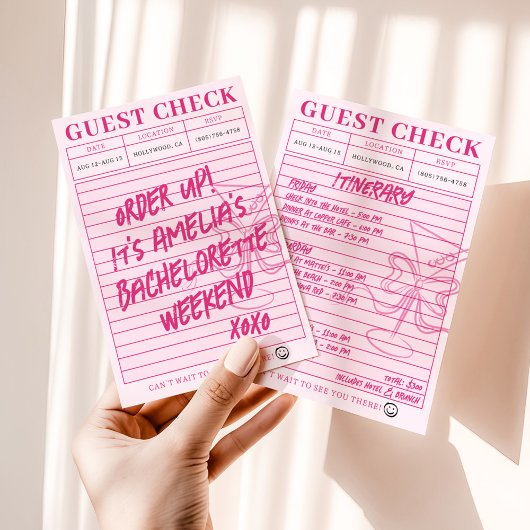 GUEST CHECK
DATE
LOCATION
RSVP
AUG 12-AUG 15
HOLLYWOOD, CA
(805)756-4758
ORDER UP!
IT'S AMELIA'S
BACHELORETTE
WEEKEND
XOXO
CAN'T WAIT TO
GUEST CHECK
DATE
LOCATION
RSVP
AUG 12-AUG 15
HOLLYWOOD, CA
(805)756-4758
ITINERARY
FRIDAY
CHECK INTO THE HOTEL - 5:00 PM
DINNER AT COPPER CAFE - 6:00 PM
DRINKS AT THE BAR - 7:30 PM
AT MATTEI'S - 11:00 AM
THE BEACH - 2:00 PM
RED - 7:30 PM
- 11:00 AM
- 2:00 PM
TOTAL: $300
INCLUDES HOTEL & BRUNCH
CAN'T WAIT TO SEE YOU THERE!